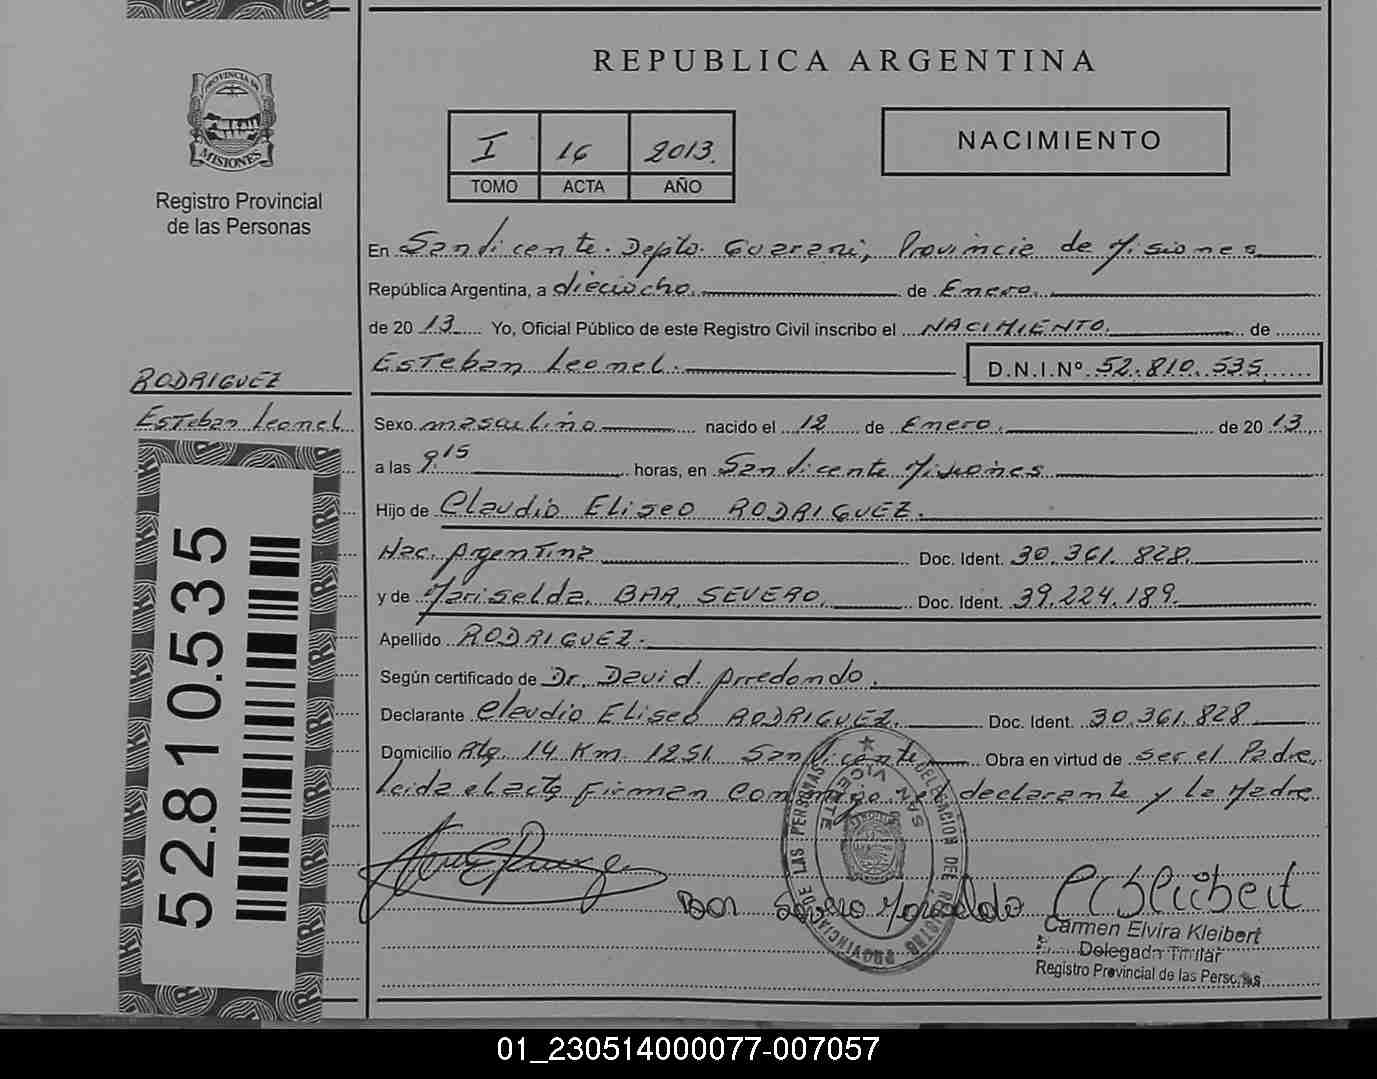 REPUBLICA ARGENTINA
PROVINCIA DE
MISIONES
Registro Provincial
de las Personas
I 16 2013.
TOMO ACTA AÑO
NACIMIENTO
En San Vicente. Depto. Guarani, Provincia de Misiones
República Argentina, a dieciocho. de Enero.
de 20 13 Yo, Oficial Público de este Registro Civil inscribo el NACIMIENTO. de
Esteban Leonel. D.N.I.Nº 52.810.535
RODRIGUEZ
Esteban Leonel
Sexo masculino nacido el 12 de Enero. de 20 13
a las 9,15 horas, en San Vicente Misiones
Hijo de Claudio Eliseo RODRIGUEZ.
Nac. Argentina Doc. Ident. 30.361.828.
y de Mariselda. BAR SEVERO. Doc. Ident. 39.224.189.
Apellido RODRIGUEZ.
Según certificado de Dr. David Arredondo.
Declarante Claudio Eliseo RODRIGUEZ. Doc. Ident. 30.361.828
Domicilio Alq. 14 Km. 1251. San Vicente Obra en virtud de ser el Padre,
Leida el acta firman conmigo el declarante y la Madre
52.810.535
DELEGACION DEL REGISTRO PROVINCIAL DE LAS PERSONAS
SAN VICENTE
Bar Severo Mariselda
C E Kleibert
Carmen Elvira Kleibert
Delegada Titular
Registro Provincial de las Personas
01_230514000077-007057